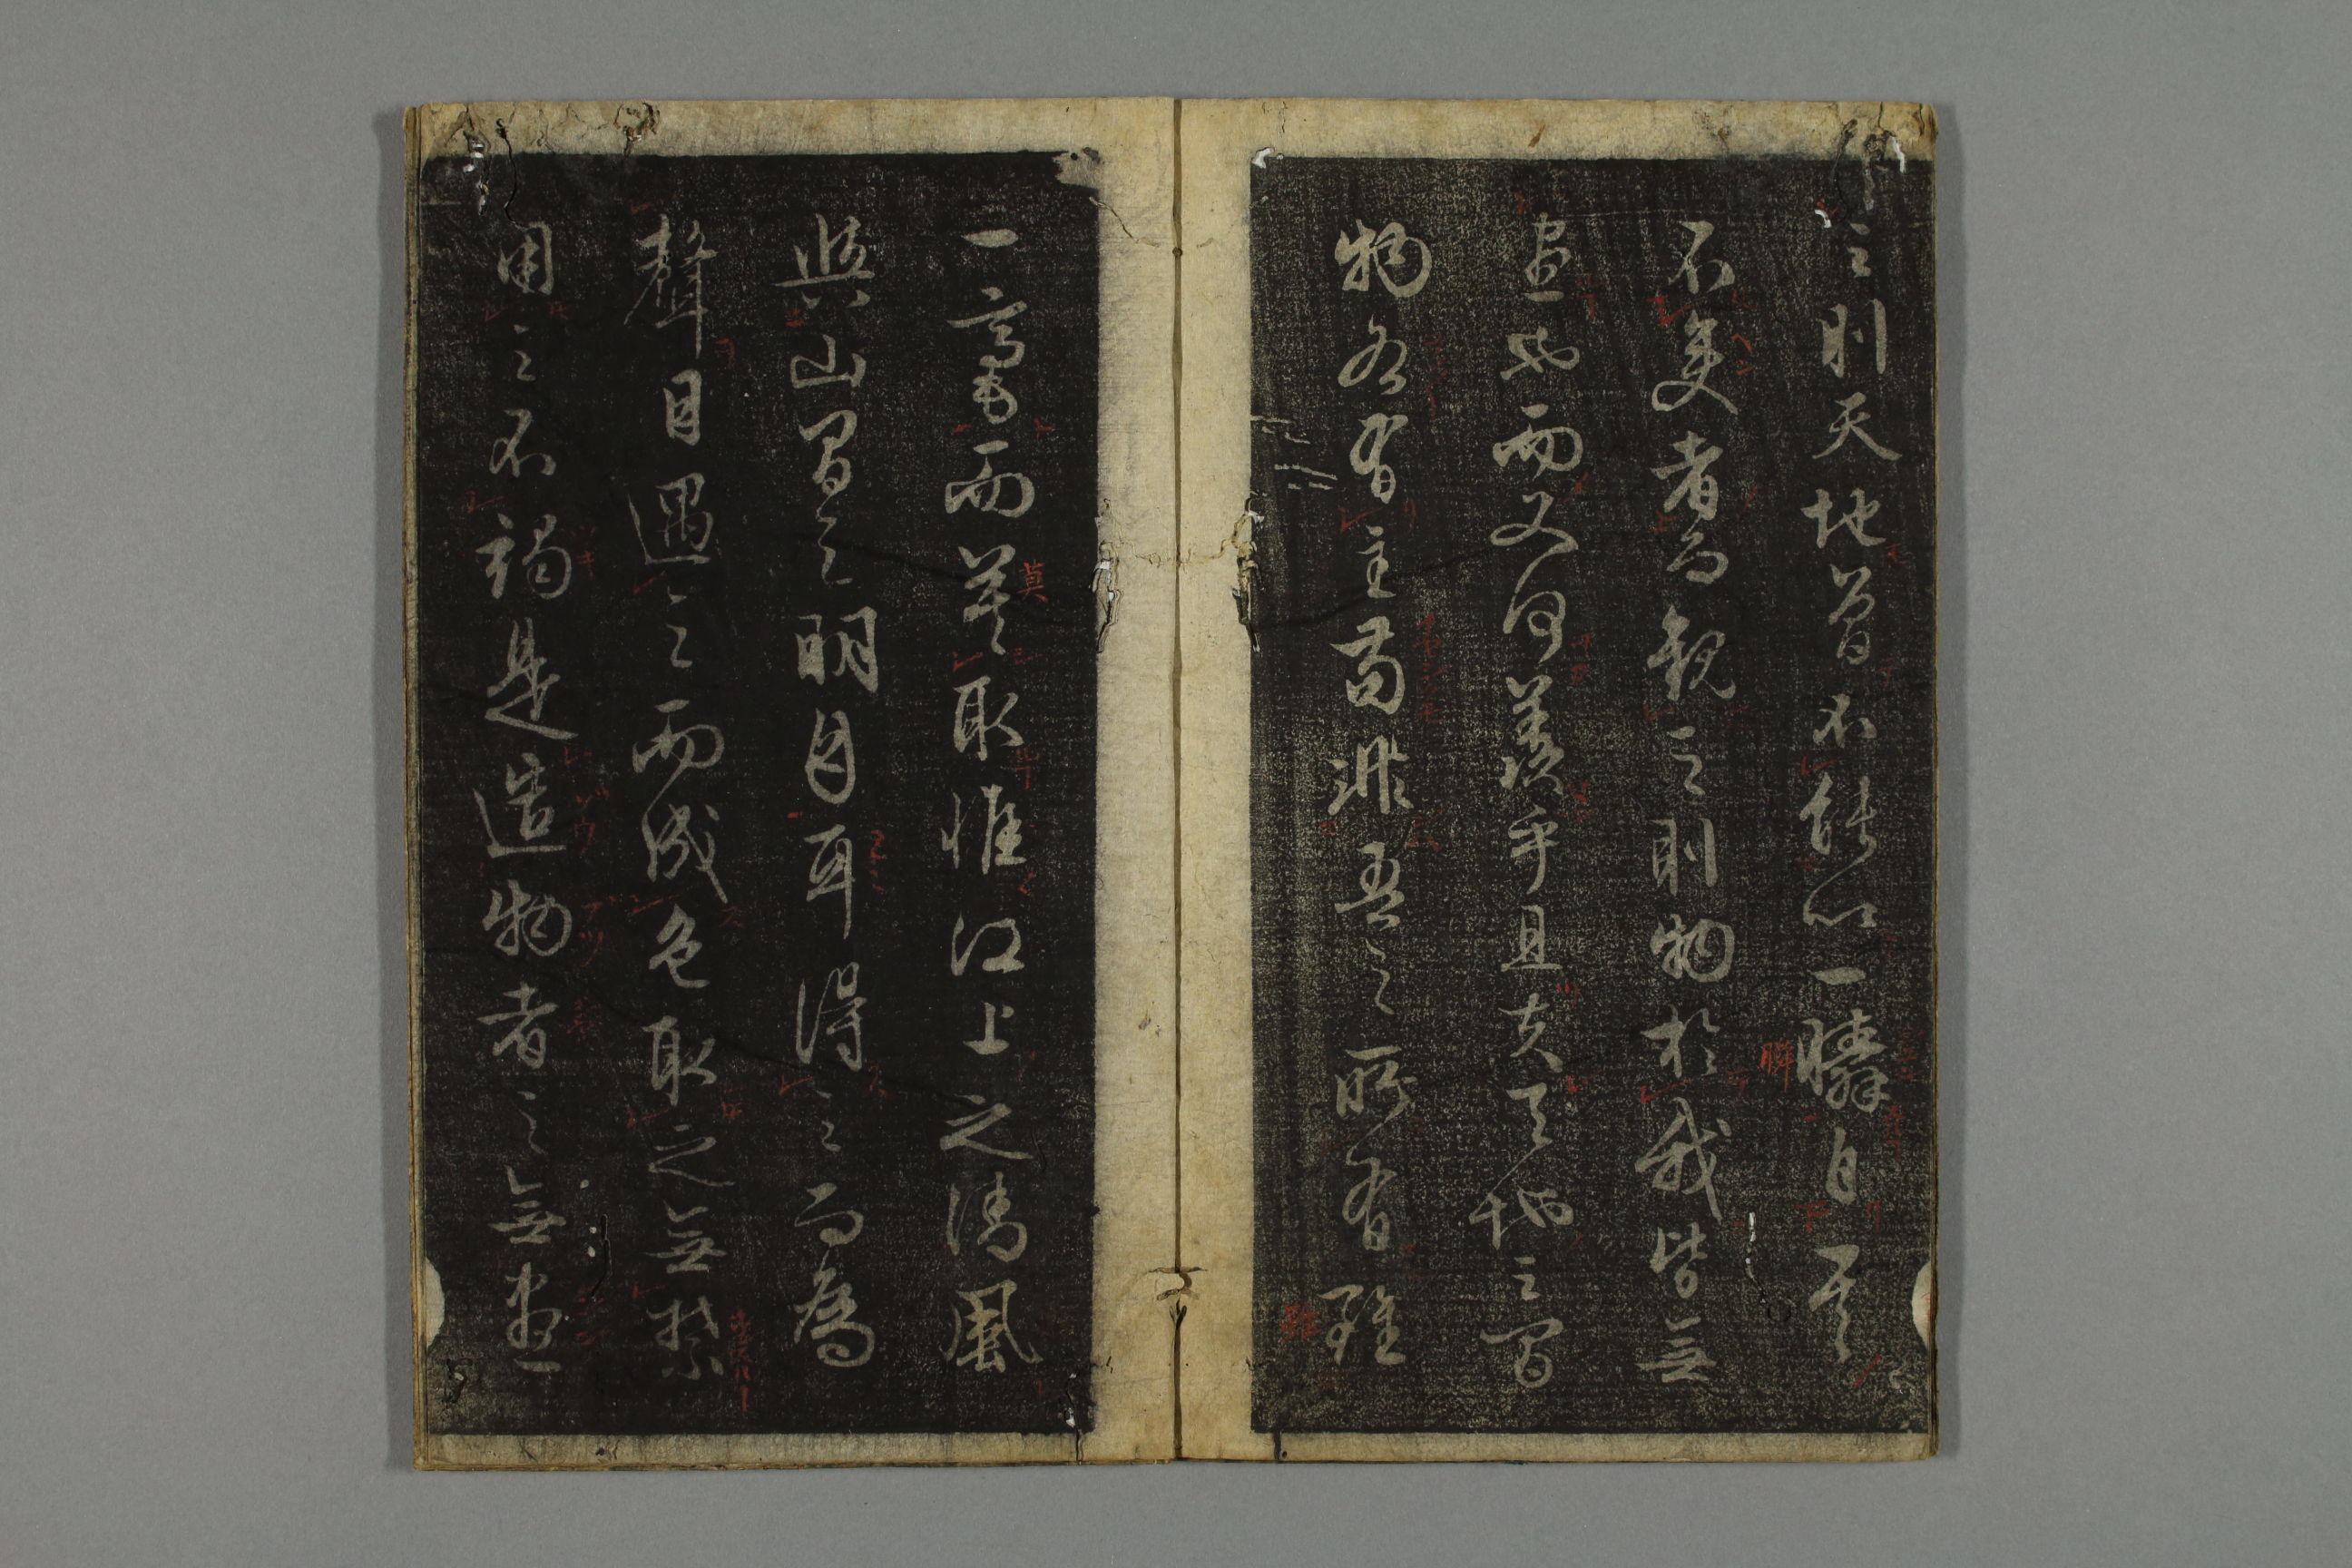 之則天地曾不能以一瞬自其
不變者而觀之則物於我皆無
盡也而又何羨乎且夫天地之間
物各有主苟非吾之所有雖
一毫而莫取惟江上之清風
與山間之明月耳得之而為
聲目遇之而成色取之無禁
用之不竭是造物者之無盡